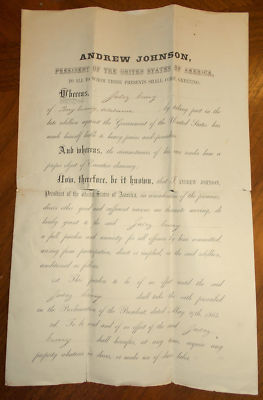 ANDREW JOHNSON,
PRESIDENT OF THE UNITED STATES OF AMERICA,
TO ALL TO WHOM THESE PRESENTS SHALL COME, GREETING:
Whereas,
of County, by taking part in the
late rebellion against the Government of the United States has
made himself liable to heavy pains and penalties;
And whereas, the circumstances of his case render him a
proper object of Executive clemency;
Now, therefore, be it known, that I, ANDREW JOHNSON,
President of the United States of America, in consideration of the premises,
divers other good and sufficient reasons me thereunto moving, do
hereby grant to the said
a full pardon and amnesty for all offences by him committed,
arising from participation, direct or implied, in the said rebellion,
conditioned as follows:
1st. This pardon to be of no effect until the said
shall take the oath prescribed
in the Proclamation of the President, dated May 29th, 1865.
2d. To be void and of no effect if the said
shall hereafter, at any time, acquire any
property whatever in slaves, or make use of slave labor.